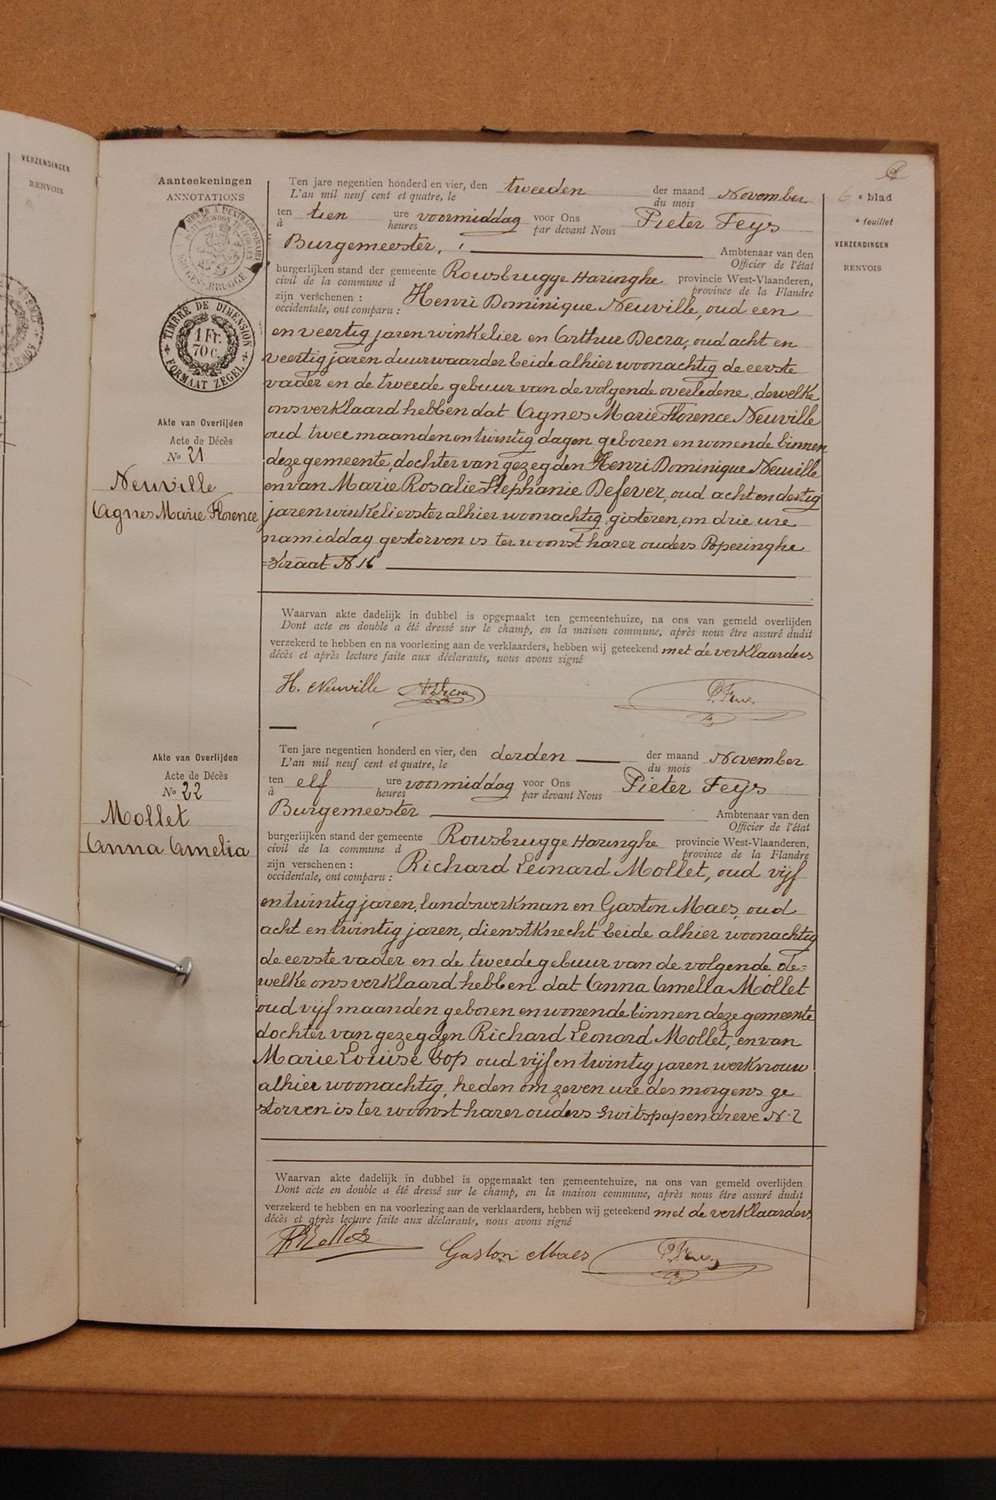 VERZENDINGEN
RENVOIS
Aanteekeningen
ANNOTATIONS
TIMBRE DE DIMENSION
1 Fr.
70 c.
FORMAAT ZEGEL
6 e blad
e feuillet
VERZENDINGEN
RENVOIS
Ten jare negentien honderd en vier, den tweeden der maand November
L'an mil neuf cent et quatre, le du mois
ten tien ure voormiddag voor Ons Pieter Feys
à heures par devant Nous
Burgemeester, Ambtenaar van den
Officier de l'état
burgerlijken stand der gemeente Rousbrugge Haringhe provincie West-Vlaanderen,
civil de la commune d province de la Flandre
zijn verschenen : Henri Dominique Neuville, oud een
occidentale, ont comparu :
en veertig jaren winkelier en Arthur Decra, oud acht en
veertig jaren duurwaarder beide alhier woonachtig de eerste
vader en de tweede gebuur van de volgende overledene, dewelke
ons verklaard hebben dat Agnes Marie Florence Neuville
oud twee maanden en twintig dagen geboren en wonende binnen
deze gemeente, dochter van gezegden Henri Dominique Neuville
en van Marie Rosalie Stephanie Defever, oud acht en dertig
jaren winkelierster alhier woonachtig, gisteren, om drie ure
namiddag gestorven is ter woonst harer ouders Poperinghe
straat N 16
Akte van Overlijden
Acte de Décès
No 21
Neuville
Agnes Marie Florence
Waarvan akte dadelijk in dubbel is opgemaakt ten gemeentehuize, na ons van gemeld overlijden
Dont acte en double a été dressé sur le champ, en la maison commune, après nous être assuré dudit
verzekerd te hebben en na voorlezing aan de verklaarders, hebben wij geteekend met de verklaarders
décès et après lecture faite aux déclarants, nous avons signé
H. Neuville A Decra P. Feys
Akte van Overlijden
Acte de Décès
No 22
Mollet
Anna Amelia
Ten jare negentien honderd en vier, den derden der maand November
L'an mil neuf cent et quatre, le du mois
ten elf ure voormiddag voor Ons Pieter Feys
à heures par devant Nous
Burgemeester Ambtenaar van den
Officier de l'état
burgerlijken stand der gemeente Rousbrugge Haringhe provincie West-Vlaanderen,
civil de la commune d province de la Flandre
zijn verschenen : Richard Leonard Mollet, oud vijf
occidentale, ont comparu :
en twintig jaren, landswerkman en Gaston Maes, oud
acht en twintig jaren, dienstknecht beide alhier woonachtig
de eerste vader en de tweede gebuur van de volgende de=
welke ons verklaard hebben dat Anna Amella Mollet
oud vijf maanden geboren en wonende binnen deze gemeente
dochter van gezegden Richard Leonard Mollet, en van
Marie Louise Top oud vijf en twintig jaren werkvrouw
alhier woonachtig, heden om zeven ure des morgens ge
storven is ter woonst harer ouders Zwitspapen dreve N. 2
Waarvan akte dadelijk in dubbel is opgemaakt ten gemeentehuize, na ons van gemeld overlijden
Dont acte en double a été dressé sur le champ, en la maison commune, après nous être assuré dudit
verzekerd te hebben en na voorlezing aan de verklaarders, hebben wij geteekend met de verklaarders
décès et après lecture faite aux déclarants, nous avons signé
R Mollet Gaston Maes P. Feys